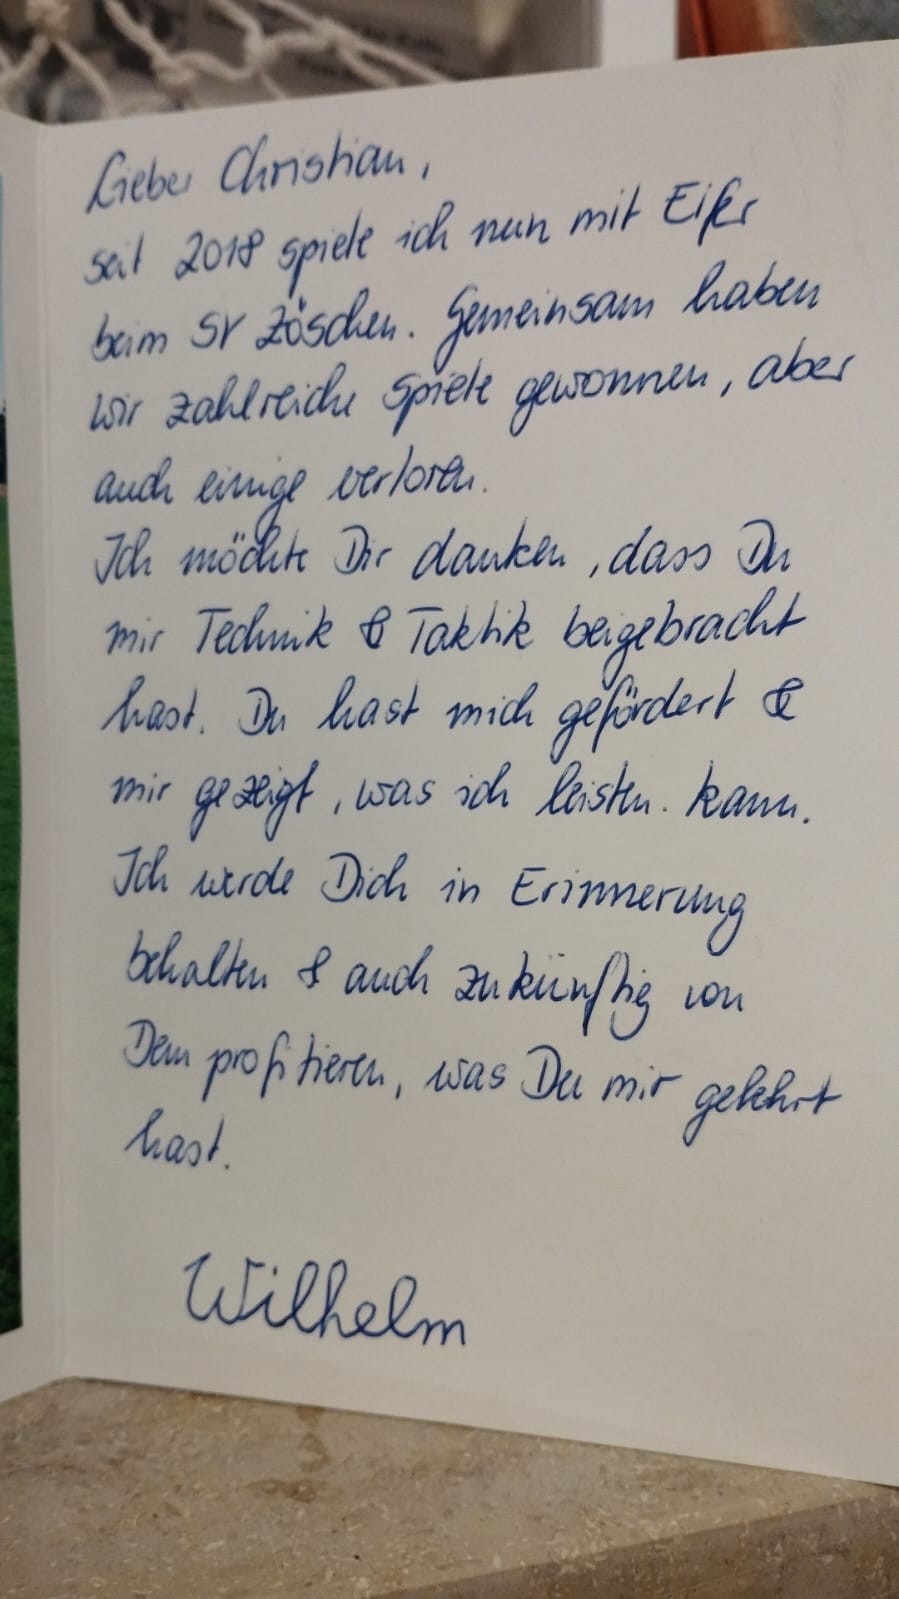 Lieber Christian,
seit 2018 spiele ich nun mit Eifer
beim SV Zöschen. Gemeinsam haben
wir zahlreiche Spiele gewonnen, aber
auch einige verloren.
Ich möchte Dir danken, dass Du
mir Technik & Taktik beigebracht
hast. Du hast mich gefördert &
mir gezeigt, was ich leisten kann.
Ich werde Dich in Erinnerung
behalten & auch zukünftig von
Dem profitieren, was Du mir gelehrt
hast.
Wilhelm